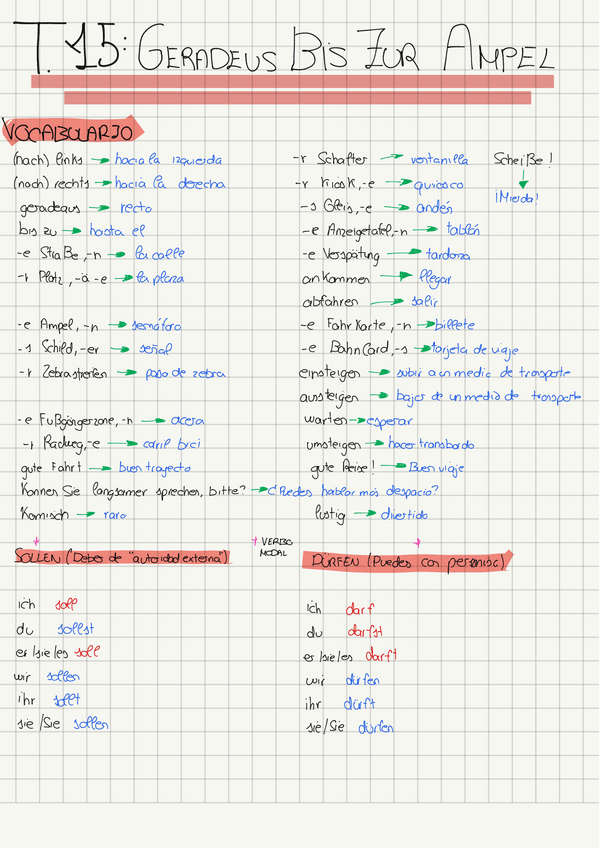 T.15: GERADEUS BIS ZUR AMPEL
VOCABULARIO
(nach) links → hacia la izquierda
(nach) rechts → hacia la derecha
geradeaus → recto
bis zu → hasta el
-e Straße,-n → la calle
-r Platz, -ä-e → la plaza
-e Ampel,-n → semáforo
-s Schild,-er → señal
-r Zebrastreifen → paso de zebra
-e Fußgängerzone,-n → acera
-r Radweg,-e → carril bici
gute Fahrt → buen trayecto
Können Sie langsamer sprechen, bitte? → ¿Puedes hablar más despacio?
Komisch → raro
-r Schalter → ventanilla
-r Kiosk,-e → quiosco
-s Gleis,-e → andén
-e Anzeigetafel,-n → tablón
-e Verspätung → tardanza
ankommen → llegar
abfahren → salir
-e Fahrkarte,-n → billete
-e BahnCard,-s → tarjeta de viaje
einsteigen → subir a un medio de transporte
austeigen → bajar de un medio de transporte
warten → esperar
umsteigen → hacer transbordo
gute Reise! → Buen viaje
lustig → divertido
Scheiße!
↓
¡Mierda!
SOLLEN (Deber de "autoridad externa")
+ VERBO MODAL
ich soll
du sollst
er/sie/es soll
wir sollen
ihr sollt
sie/Sie sollen
DÜRFEN (Puedes con permiso)
ich darf
du darfst
er/sie/es darft
wir dürfen
ihr dürft
sie/Sie dürfen